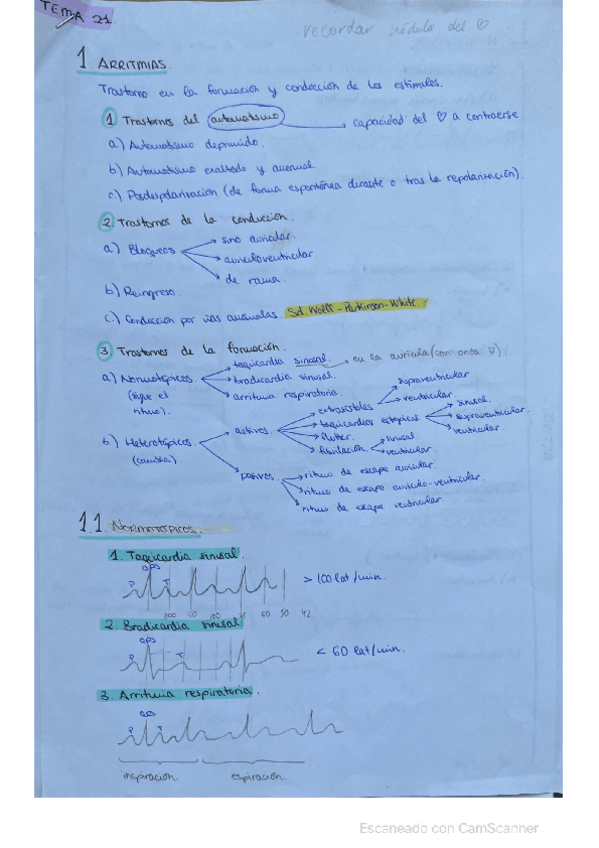 TEMA 21.
recordar nódulo del ♡
1 ARRITMIAS.
Trastorno en la formación y conducción de los estímulos.
1 Trastornos del automatismo → capacidad del ♡ a contraerse
a) Automatismo deprimido.
b) Automatismo exaltado y anormal.
c) Posdespolarización (de forma espontánea durante o tras la repolarización).
2 Trastornos de la conducción.
a) Bloqueos → sino auricular.
→ auriculoventricular
→ de rama.
b) Reingreso.
c) Conducción por vías anómalas. Sd. Wolff-Parkinson-White
3 Trastornos de la formación.
a) Normotópicos. (sigue el ritmo).
→ taquicardia sinusal → en la aurícula (con onda P).
→ bradicardia sinusal.
→ arritmia respiratoria.
b) Heterotópicos (cambia)
→ activos.
→ extrasístoles → supraventricular
→ ventricular.
→ taquicardias ectópicas → sinusal.
→ supraventricular.
→ ventricular
→ flutter.
→ fibrilación → sinusal.
→ ventricular.
→ pasivos.
→ ritmo de escape auricular.
→ ritmo de escape aurículo-ventricular.
→ ritmo de escape ventricular.
1.1. NORMOTÓPICOS.
1. Taquicardia sinusal.
P QRS T
> 100 lat/min.
300 60 50 42
2. Bradicardia sinusal
P QRS T
< 60 lat/min.
3. Arritmia respiratoria.
P QRS T
inspiración. espiración.
Escaneado con CamScanner